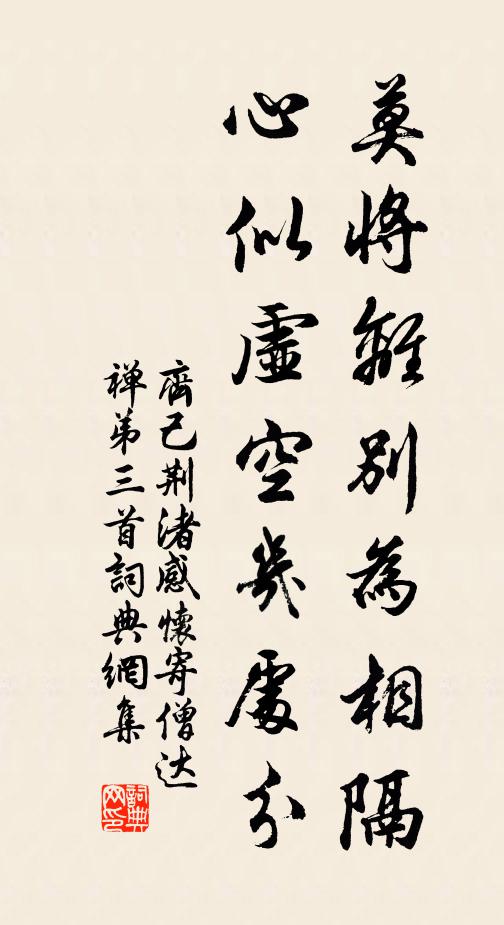 莫將離別為相隔
心似虛空幾處分
齊己荆渚感懷寄僧达
禅弟三首詞典網集
詞典网印